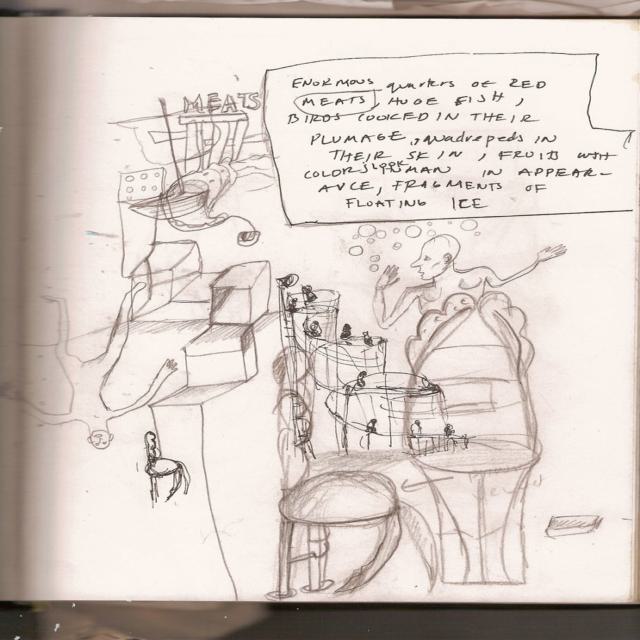 MEATS
ENORMOUS quarters OF RED
MEATS, HUGE FISH,
BIRDS COOKED IN THEIR
PLUMAGE, quadrepeds IN
THEIR SKIN, FRUITS WITH
COLORS LOOK INHUMAN IN APPEAR-
ANCE, FRAGMENTS OF
FLOATING ICE